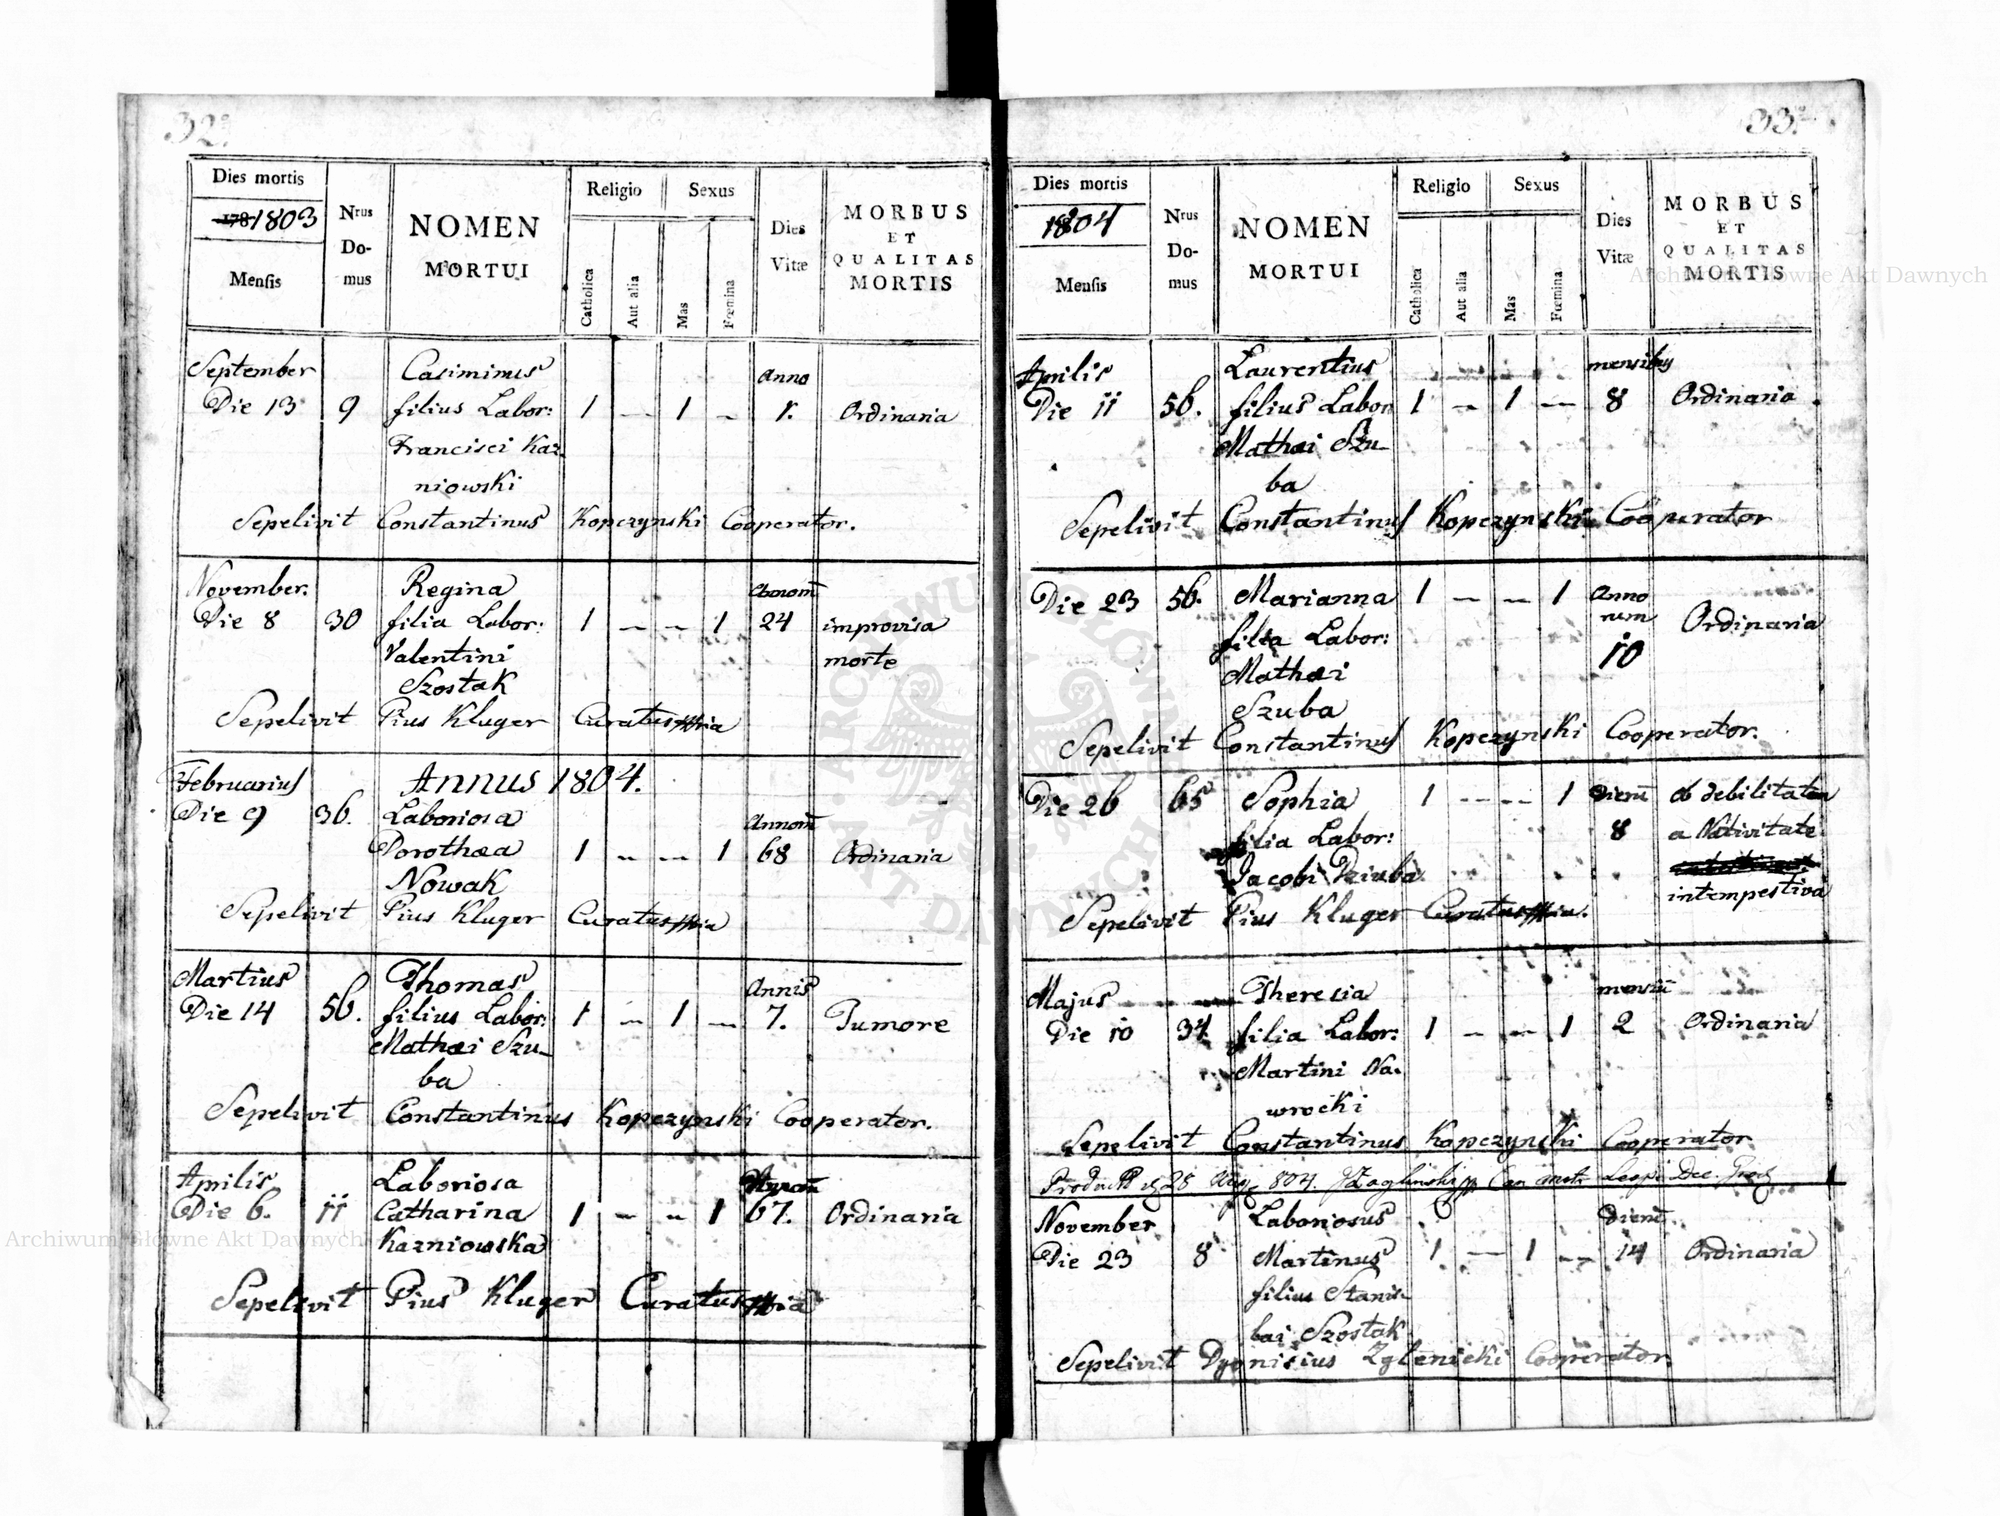 32.
Dies mortis
1781803
Mensis
Nrus
Do-
mus
NOMEN
MORTUI
Religio
Sexus
Catholica
Aut alia
Mas
Fœmina
Dies
Vitæ
MORBUS
ET
QUALITAS
MORTIS
September
Casimirus
Anno
Die 13 9 filius Labor: 1 — 1 — 1. Ordinaria
Francisci Kaz-
niowski
Sepelivit Constantinus Kopczynski Cooperator.
November.
Regina
Annorū
Die 8 30 filia Labor: 1 — — 1 24 improvisa
Valentini morte
Szostak
Sepelivit Pius Kluger Curatus
Februarius Annus 1804.
Die 9 36. Laboriosa Annorū
Dorothæa 1 — — 1 68 Ordinaria
Nowak
Sepelivit Pius Kluger Curatus
Martius Thomas Annis
Die 14 56. filius Labor: 1 — 1 — 7. Tumore
Mathæi Szu-
ba
Sepelivit Constantinus Kopczynski Cooperator.
Aprilis Laboriosa
Die 6. 11 Catharina 1 — — 1 67. Ordinaria
Kazniowska
Sepelivit Pius Kluger Curatus
33.
Dies mortis
1804
Mensis
Nrus
Do-
mus
NOMEN
MORTUI
Religio
Sexus
Catholica
Aut alia
Mas
Fœmina
Dies
Vitæ
MORBUS
ET
QUALITAS
MORTIS
Aprilis Laurentius mensibus
Die 11 56. filius Labor 1 — 1 — 8 Ordinaria
Mathæi Szu-
ba
Sepelivit Constantinus Kopczynski Cooperator
Die 23 56. Marianna 1 — — 1 Anno
filia Labor: rum Ordinaria
Mathæi 10
Szuba
Sepelivit Constantinus Kopczynski Cooperator.
Die 26 65 Sophia 1 — — 1 Dierū ob debilitatem
filia Labor: 8 a Nativitate
Jacobi Dziuba
intempestiva
Sepelivit Pius Kluger Curatus
Majus Theresia mensiū
Die 10 34. filia Labor: 1 — — 1 2 Ordinaria
Martini Na-
wrocki
Sepelivit Constantinus Kopczynski Cooperator
28 804.
November Laboriosus Dierū
Die 23 8 Martinus 1 — 1 — 14 Ordinaria
filius Stanis-
lai Szostak
Sepelivit Dyonisius Zglenicki Cooperator.
Archiwum Główne Akt Dawnych
Archiwum Główne Akt Dawnych
ARCHIWUM GŁÓWNE AKT DAWNYCH